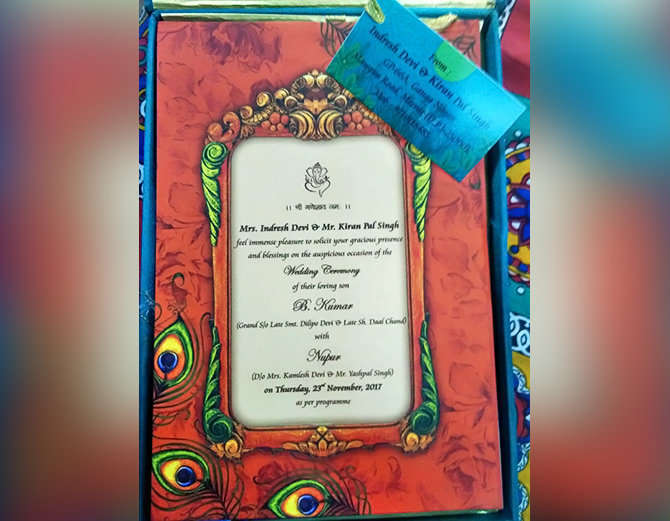 From :
Indresh Devi & Kiran Pal Singh
Ganga
Road,
।। श्री गणेशाय नमः ।।
Mrs. Indresh Devi & Mr. Kiran Pal Singh
feel immense pleasure to solicit your gracious presence
and blessings on the auspicious occasion of the
Wedding Ceremony
of their loving son
B. Kumar
(Grand S/o Late Smt. Dilipo Devi & Late Sh. Daal Chand)
with
Nupur
(D/o Mrs. Kamlesh Devi & Mr. Yashpal Singh)
on Thursday, 23rd November, 2017
as per programme